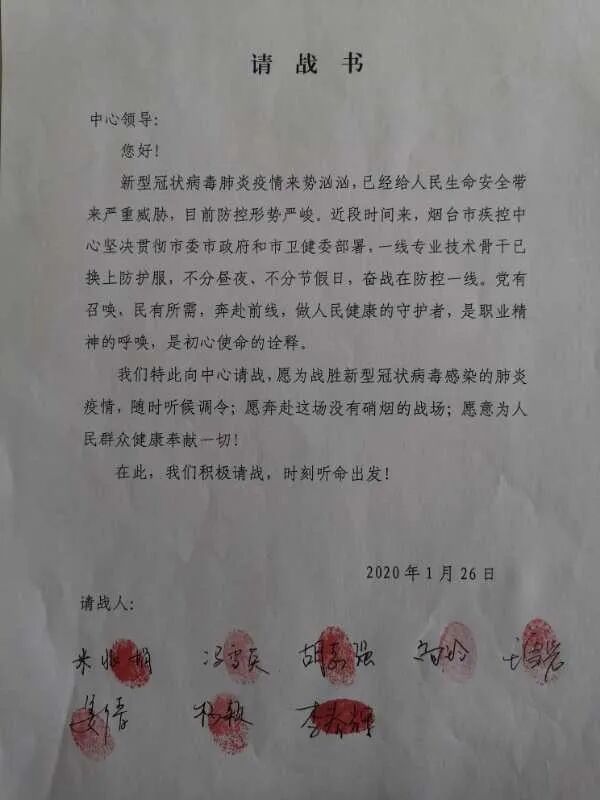 请战书
中心领导：
您好！
新型冠状病毒肺炎疫情来势汹汹，已经给人民生命安全带
来严重威胁，目前防控形势严峻。近段时间来，烟台市疾控中
心坚决贯彻市委市政府和市卫健委部署，一线专业技术骨干已
换上防护服，不分昼夜、不分节假日，奋战在防控一线。党有
召唤，民有所需，奔赴前线，做人民健康的守护者，是职业精
神的呼唤，是初心使命的诠释。
我们特此向中心请战，愿为战胜新型冠状病毒感染的肺炎
疫情，随时听候调令；愿奔赴这场没有硝烟的战场；愿意为人
民群众健康奉献一切！
在此，我们积极请战，时刻听命出发！
2020 年 1 月 26 日
请战人：
冯雪英 胡 强
姜倩 杨敏 李 辉